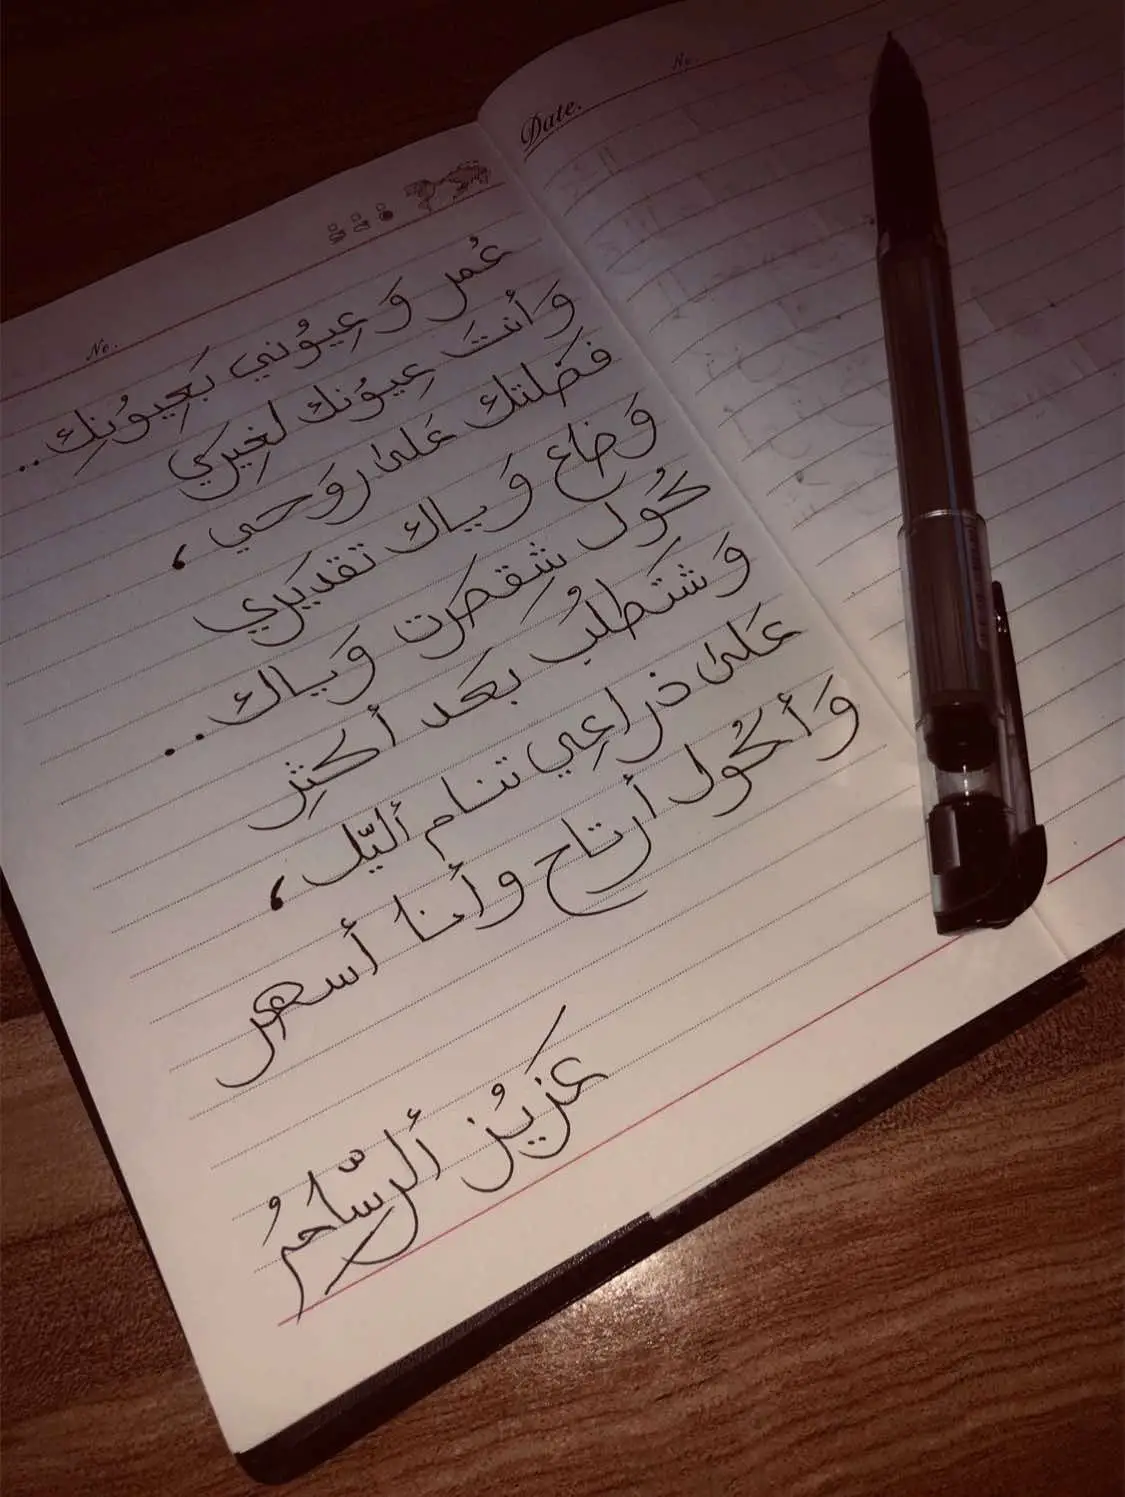 Date.
No.
No.
عُمر وَ عِيوُني بَعِيوُنِك..
وَأنتَ عِيوُنك لغِيرَي
فضَلتك عَلىٰ روَحي ،
وَضاع وَياك تقديَري
كُول شِقصَرت وَياك..
وَشتَطلبُ بعَد أكثِر
عَلىٰ ذراعِي تنام أليّل ،
وَأكُول أرتاح وأنا أسهر
عَزيُز ألرسّامُ